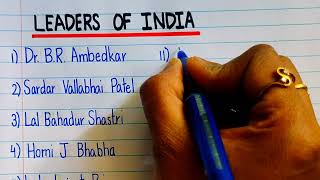 LEADERS OF INDIA
1) Dr. B.R. Ambedkar 11)
2) Sardar Vallabhai Patel
3) Lal Bahadur Shastri
4) Homi J Bhabha